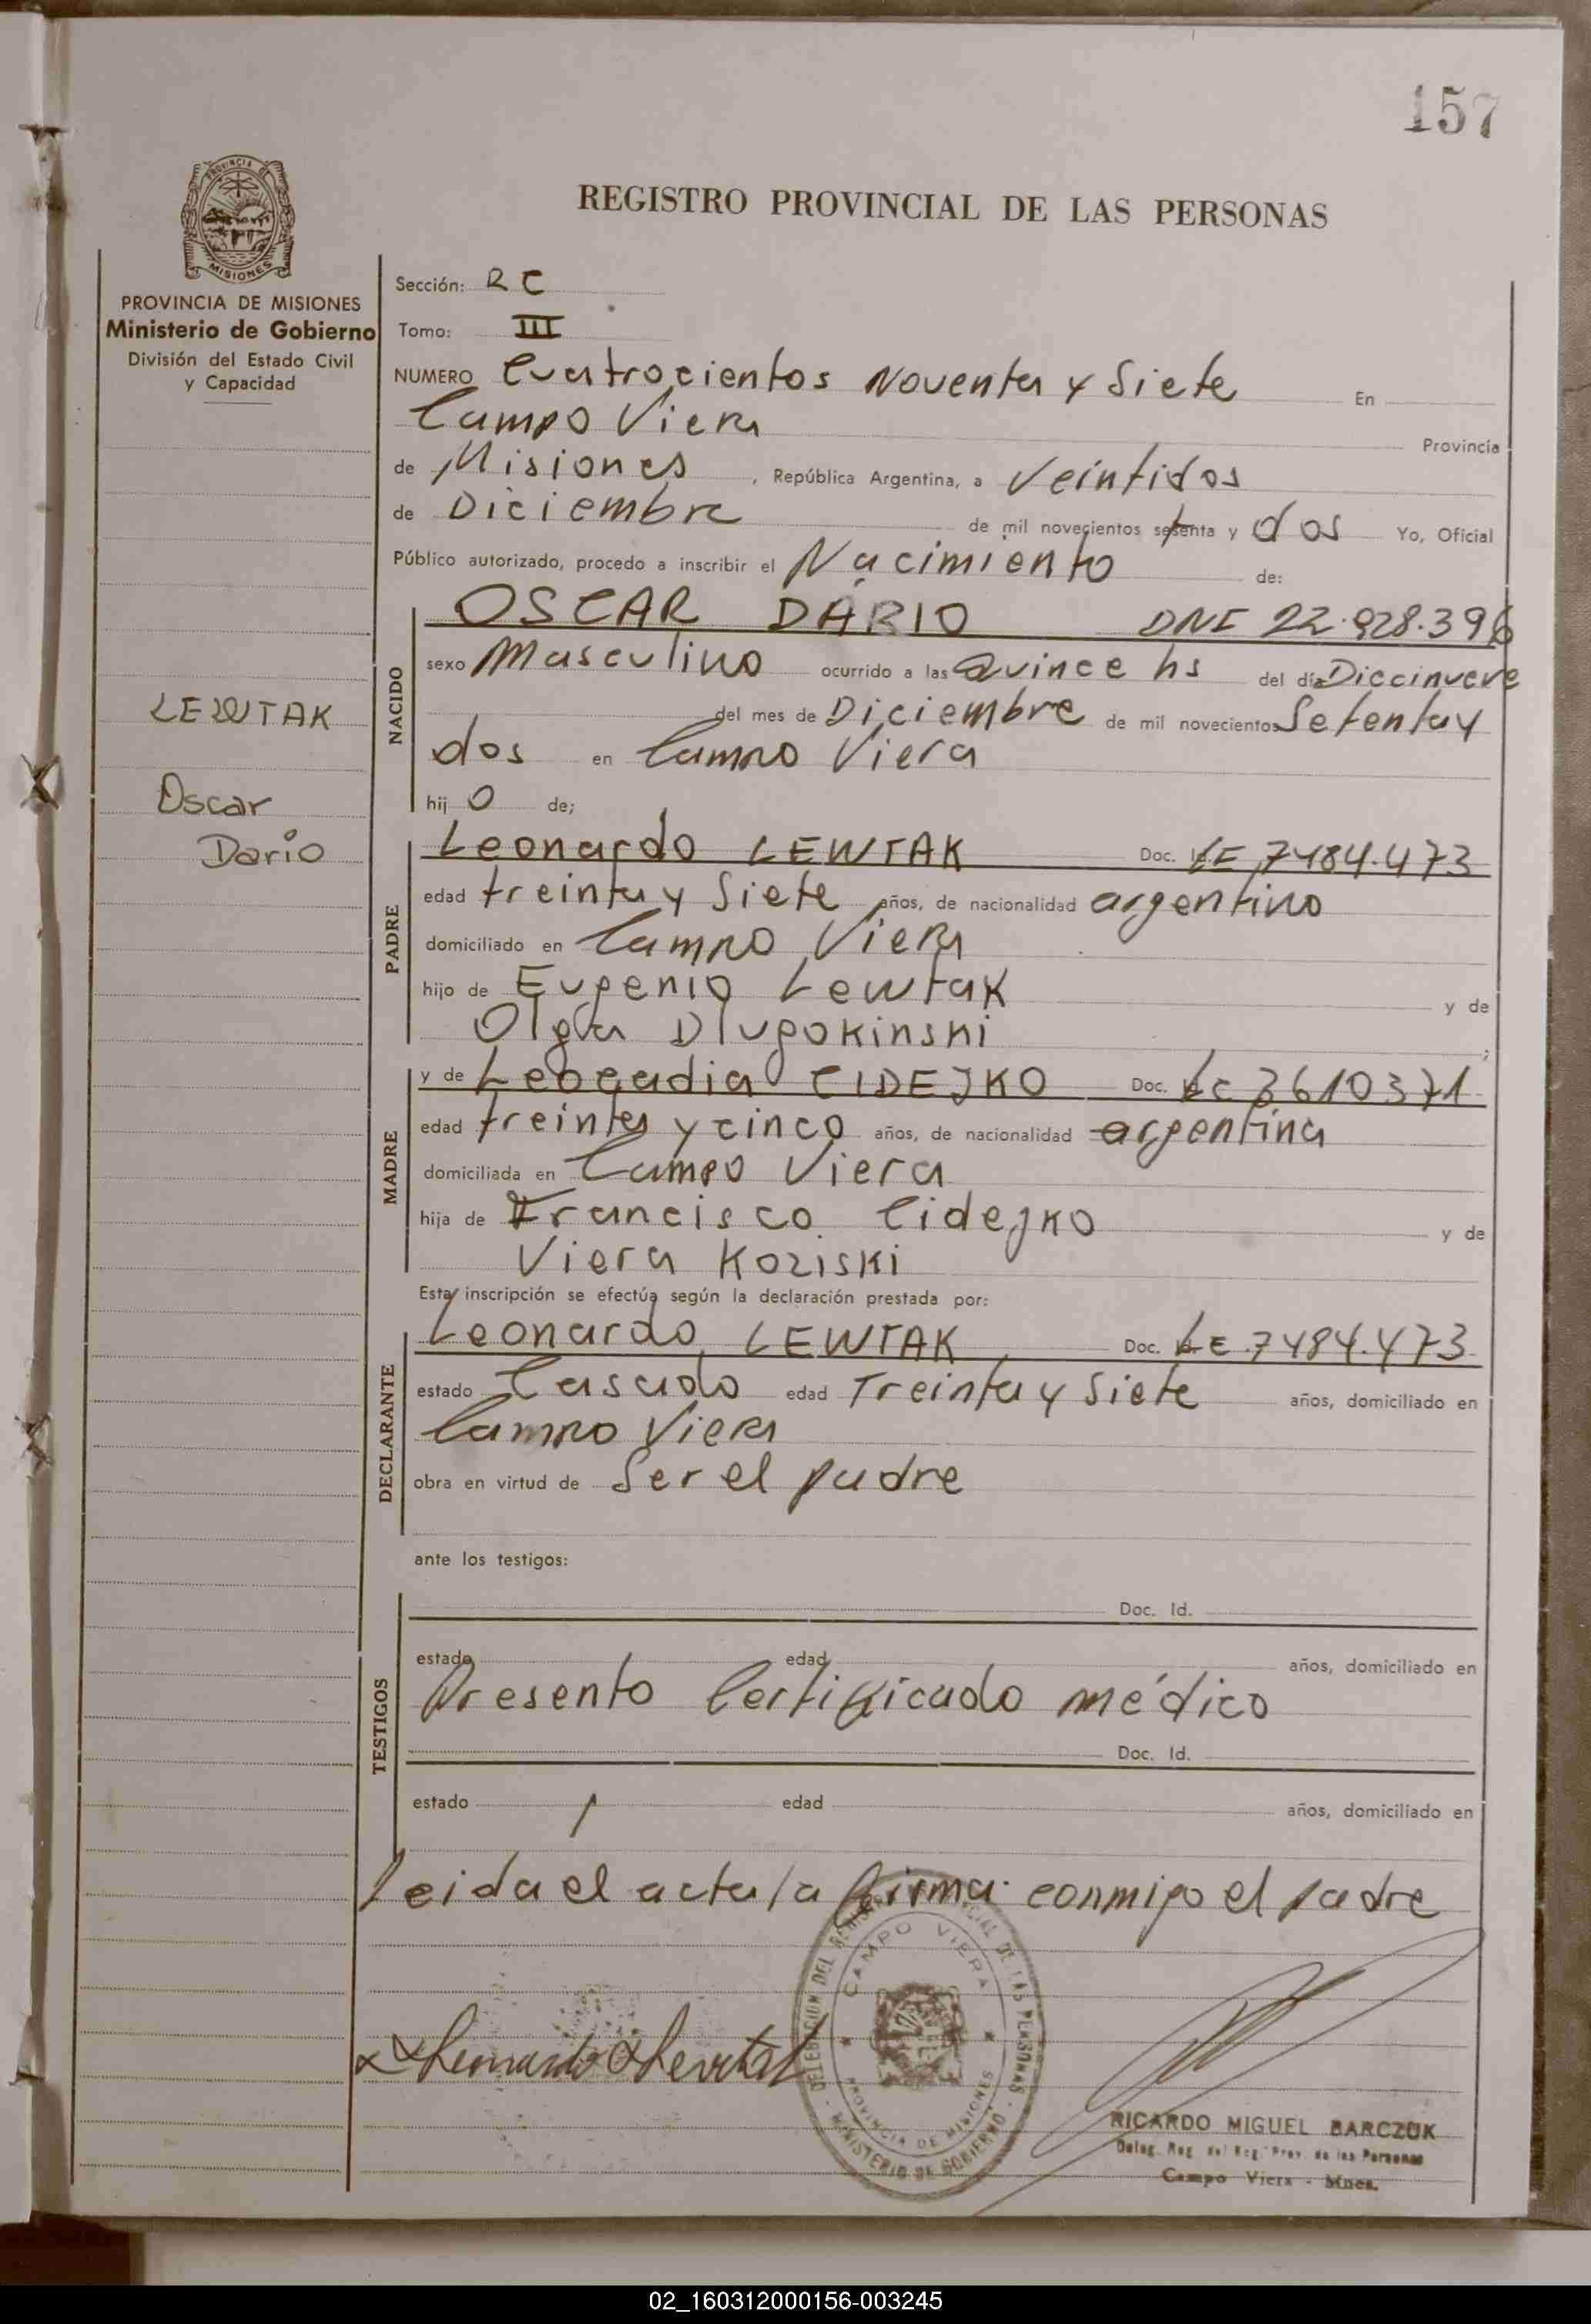 157
REGISTRO PROVINCIAL DE LAS PERSONAS
PROVINCIA DE MISIONES
Ministerio de Gobierno
División del Estado Civil
y Capacidad
LEWTAK
Oscar
Dario
Sección: RC
Tomo: III
NUMERO Cuatrocientos Noventa y Siete En
Campo Viera Provincia
de Misiones, República Argentina, a Veintidos
de Diciembre de mil novecientos setenta y dos Yo, Oficial
Público autorizado, procedo a inscribir el Nacimiento de:
NACIDO
OSCAR DARIO DNI 22.928.396
sexo Masculino ocurrido a las Quince hs del día Diecinueve
del mes de Diciembre de mil novecientos Setenta y
dos en Campo Viera
hij o de;
PADRE
Leonardo LEWTAK Doc. LE 7484.473
edad treinta y Siete años, de nacionalidad argentino
domiciliado en Campo Viera
hijo de Eugenio Lewtak y de
Olga Dlugokinski;
MADRE
y de Leogadia CIDEJKO Doc. LC 3610371
edad treinta y cinco años, de nacionalidad argentina
domiciliada en Campo Viera
hija de Francisco Cidejko y de
Viera Koziski
Esta inscripción se efectúa según la declaración prestada por:
DECLARANTE
Leonardo LEWTAK Doc. LE 7484.473
estado Casado edad Treinta y Siete años, domiciliado en
Campo Viera
obra en virtud de Ser el padre
ante los testigos:
TESTIGOS
Doc. Id.
estado edad años, domiciliado en
Presento Certificado médico
Doc. Id.
estado edad años, domiciliado en
Leida el acta la firma conmigo el padre
DELEGACION DEL REGISTRO PROVINCIAL DE LAS PERSONAS
CAMPO VIERA
PROVINCIA DE MISIONES
MINISTERIO DE GOBIERNO
RICARDO MIGUEL BARCZUK
Deleg. Reg. del Reg. Prov. de las Personas
Campo Viera - Mnes.
02_160312000156-003245